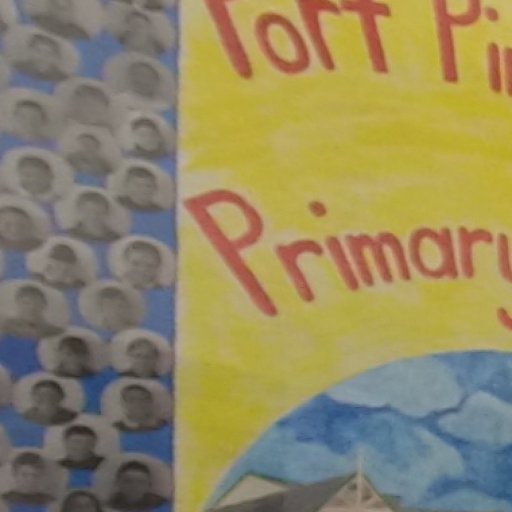 Port Pi
Primary